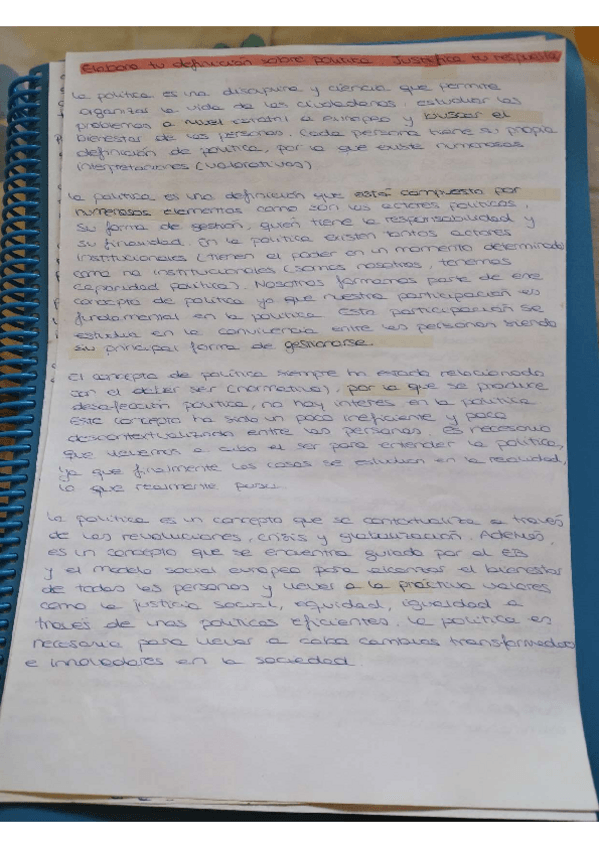 Elabora tu definición sobre política. Justifica tu respuesta
La política es una disciplina y ciencia que permite
organizar la vida de los ciudadanos, estudiar los
problemas a nivel estatal a europeo y buscar el
bienestar de las personas. Cada persona tiene su propia
definición de política, por lo que existe numerosas
interpretaciones (valorativas)
La política es una definición que está compuesto por
numerosos elementos como son los actores políticos,
su forma de gestión, quién tiene la responsabilidad y
su finalidad. En la política existen tantos actores
institucionales (tienen el poder en un momento determinado)
como no institucionales (somos nosotros, tenemos
capacidad política). Nosotros formamos parte de ese
concepto de política ya que nuestra participación es
fundamental en la política. Esta participación se
estudia en la convivencia entre las personas siendo
su principal forma de gestionarse.
El concepto de política siempre ha estado relacionado
con el deber ser (normativo), por lo que se produce
desafección política, no hay interés en la política
Este concepto ha sido un poco ineficiente y poco
descontextualizado entre las personas. Es necesario
que llevemos a cabo el ser para entender la política,
ya que finalmente las cosas se estudian en la realidad,
lo que realmente pasa.
La política es un concepto que se contextualiza a través
de las revoluciones, crisis y globalización. Además,
es un concepto que se encuentra guiado por el EB
y el modelo social europeo para alcanzar el bienestar
de todas las personas y llevar a la práctica valores
como la justicia social, equidad, igualdad a
través de unas políticas eficientes. La política es
necesaria para llevar a cabo cambios transformados
e innovadores en la sociedad